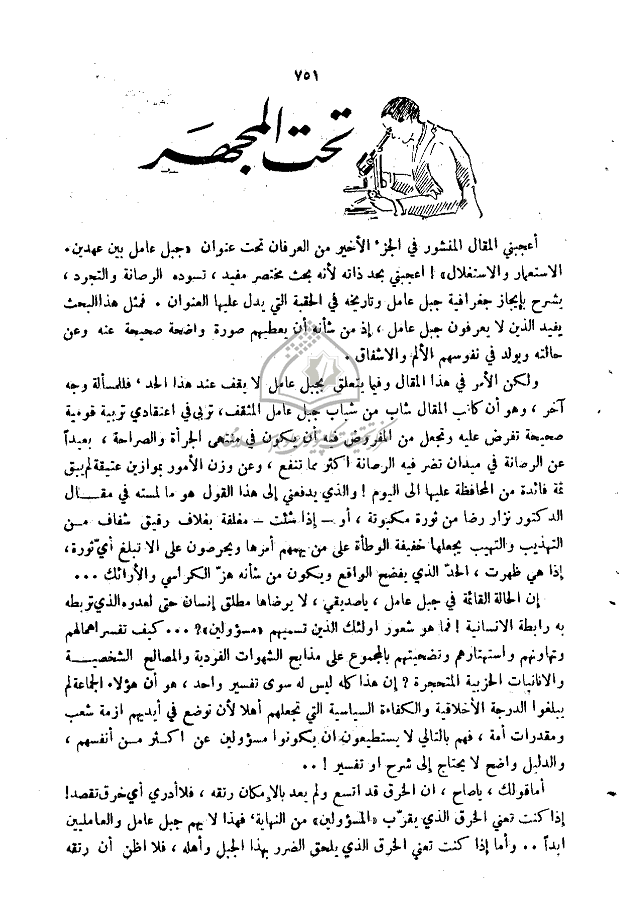 ٧٥١
تحت المجهر
أعجبني المقال المنشور في الجزء الأخير من العرفان تحت عنوان «جبل عامل بين عهدين.
الاستعمار والاستغلال» ! اعجبني بحد ذاته لأنه بحث مختصر مفيد ، تسوده الرصانة والتجرد ،
يشرح بإيجاز جغرافية جبل عامل وتاريخه في الحقبة التي يدل عليها العنوان . فمثل هذا البحث
يفيد الذين لا يعرفون جبل عامل ، إذ من شأنه أن يعطيهم صورة واضحة صحيحة عنه وعن
حالته ويولد في نفوسهم الألم والاشفاق .
ولكن الأمر في هذا المقال وفيما يتعلق بجبل عامل لا يقف عند هذا الحد ' فللمسألة وجه
آخر ، وهو أن كاتب المقال شاب من شباب جبل عامل المثقف، تربى في اعتقادي تربية قومية
صحيحة تفرض عليه وتجعل من المفروض فيه أن يكون في منتهى الجرأة والصراحة ، بعيداً
عن الرصانة في ميدان تضر فيه الرصانة اكثر مما تنفع ، وعن وزن الأمور بموازين عتيقة لم يبق
ثمة فائدة من المحافظة عليها الى اليوم ! والذي يدفعني إلى هذا القول هو ما لمسته في مقـــال
الدكتور نزار رضا من ثورة مكبوتة ، أو – إذا شئت – مغلفة بغلاف رقيق شفاف مـــن
التهذيب والتهيب يجعلها خفيفة الوطأة على من يهمهم أمرها ويحرصون على الا تبلغ أي ثورة،
إذا هي ظهرت ، الحدّ الذي يفضح الواقع ويكون من شأنه هزّ الكراسي والأرائك ...
إن الحالة القائمة في جبل عامل ، ياصديقي ، لا يرضاها مطلق إنسان حتى لعدوه الذي تربطه
به رابطة الانسانية ! فما هو شعور اولئك الذين تسميهم «مسؤولين»? ... كيف تفسر اهمالهم
وتهاونهم واستهتارهم وتضحيتهم بالمجموع على مذابح الشهوات الفردية والمصالح الشخصيـــة
والانانيات الحزبية المتحجرة ? إن هذا كله ليس له سوى تفسير واحد ، هو أن هؤلاء الجماعة لم
يبلغوا الدرجة الأخلاقية والكفاءة السياسية التي تجعلهم أهلا لأن توضع في أيديهم ازمة شعب
ومقدرات أمة ، فهم بالتالي لا يستطيعون ان يكونوا مسؤولين عن اكثر مـــن أنفسهم ،
والدليل واضح لا يحتاج إلى شرح او تفسير ! ..
أماقولك ، ياصاح ، ان الخرق قد اتسع ولم يعد بالإمكان رتقه ، فلاأدري أي خرق تقصد!
إذا كنت تعني الخرق الذي يقرّب «المسؤولين» من النهاية' فهذا لا يهم جبل عامل والعامليين
ابداً .. وأما إذا كنت تعني الخرق الذي يلحق الضرر بهذا الجبل وأهله ، فلا اظن أن رتقه